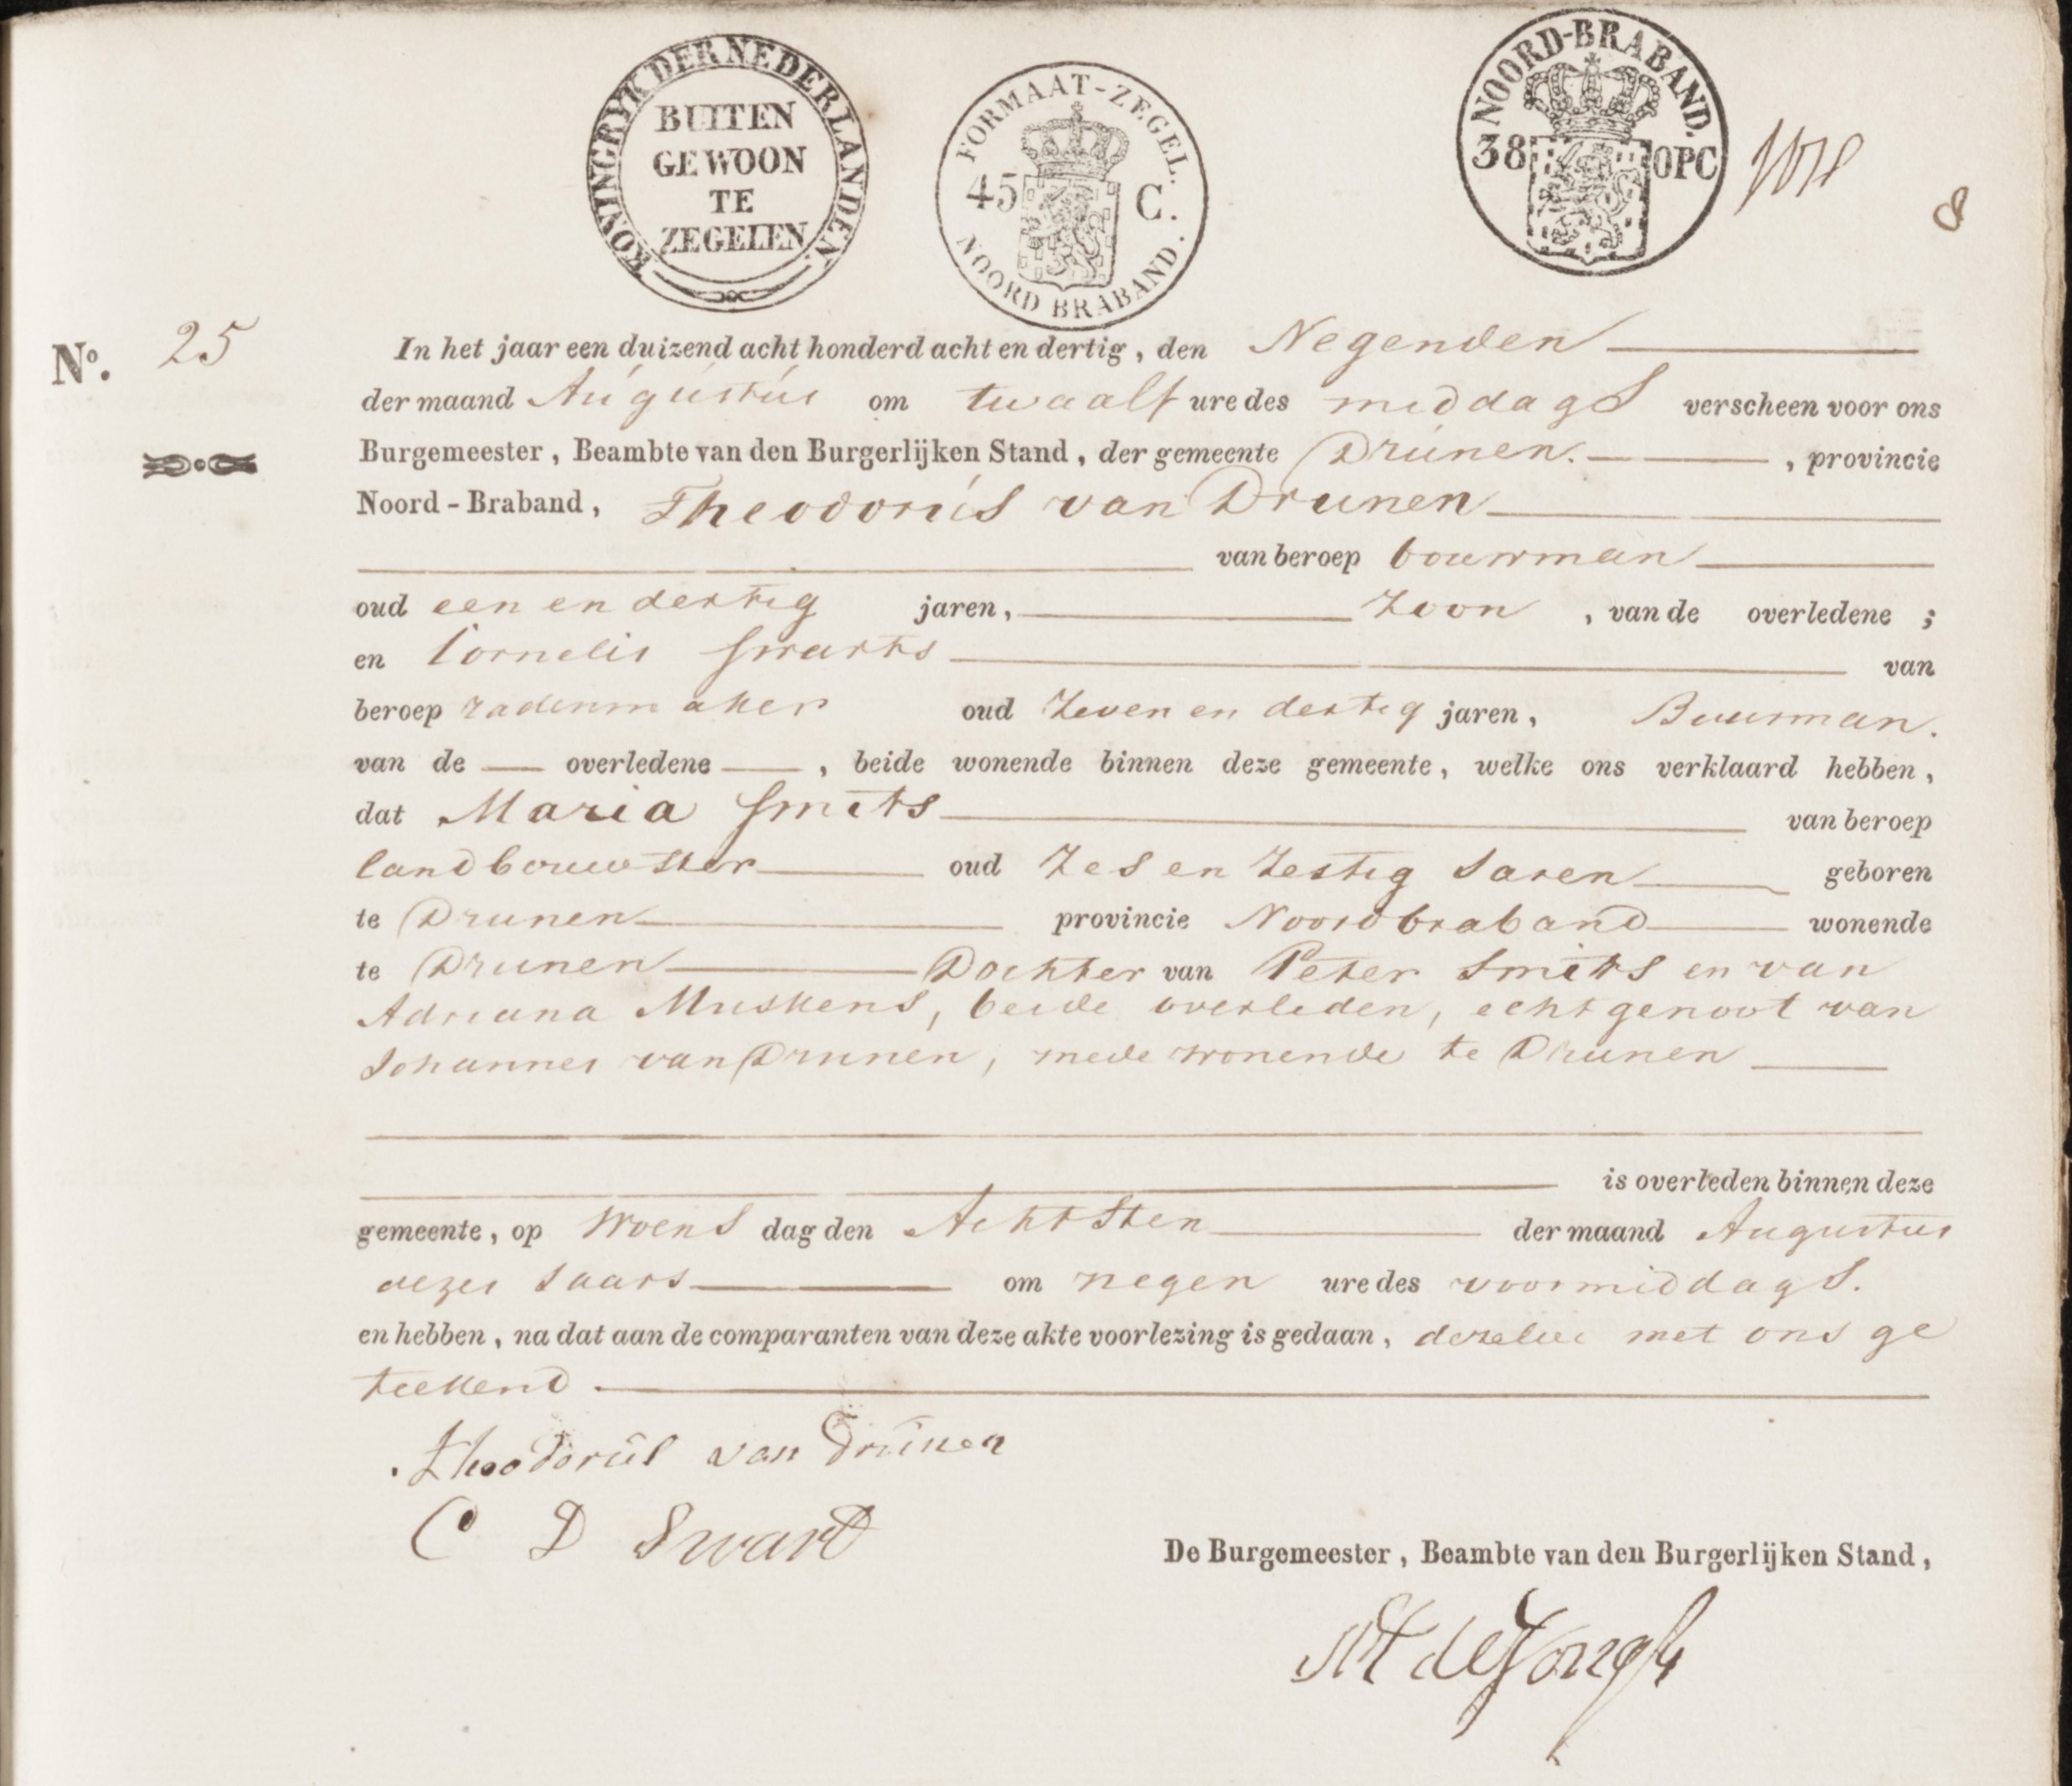 KONINGRYK DER NEDERLANDEN.
BUITEN
GEWOON
TE
ZEGELEN
FORMAAT-ZEGEL.
45 C.
NOORD BRABAND.
NOORD-BRABAND.
38 OPC
8
No. 25
In het jaar een duizend acht honderd acht en dertig, den Negenden
der maand Augustus om twaalf ure des middags verscheen voor ons
Burgemeester, Beambte van den Burgerlijken Stand, der gemeente Drunen. , provincie
Noord-Braband, Theodorus van Drunen
van beroep bouwman
oud een en dertig jaren, Zoon , van de overledene ;
en Cornelis Swarts van
beroep radenmaker oud Zeven en dertig jaren, Buurman.
van de overledene , beide wonende binnen deze gemeente, welke ons verklaard hebben,
dat Maria Smits van beroep
landbouwster oud Zes en Zestig Jaren geboren
te Drunen provincie Noordbraband wonende
te Drunen Dochter van Peter Smits en van
Adriana Muskens, beide overleden, echtgenoot van
Johannes van Drunen, mede wonende te Drunen
is overleden binnen deze
gemeente, op Woens dag den Achtsten der maand Augustus
dezes Jaars om negen ure des voormiddags.
en hebben, na dat aan de comparanten van deze akte voorlezing is gedaan, dezelve met ons ge
teekend.
Theodorus van Drunen
C D Swart
De Burgemeester, Beambte van den Burgerlijken Stand,
de Jongh